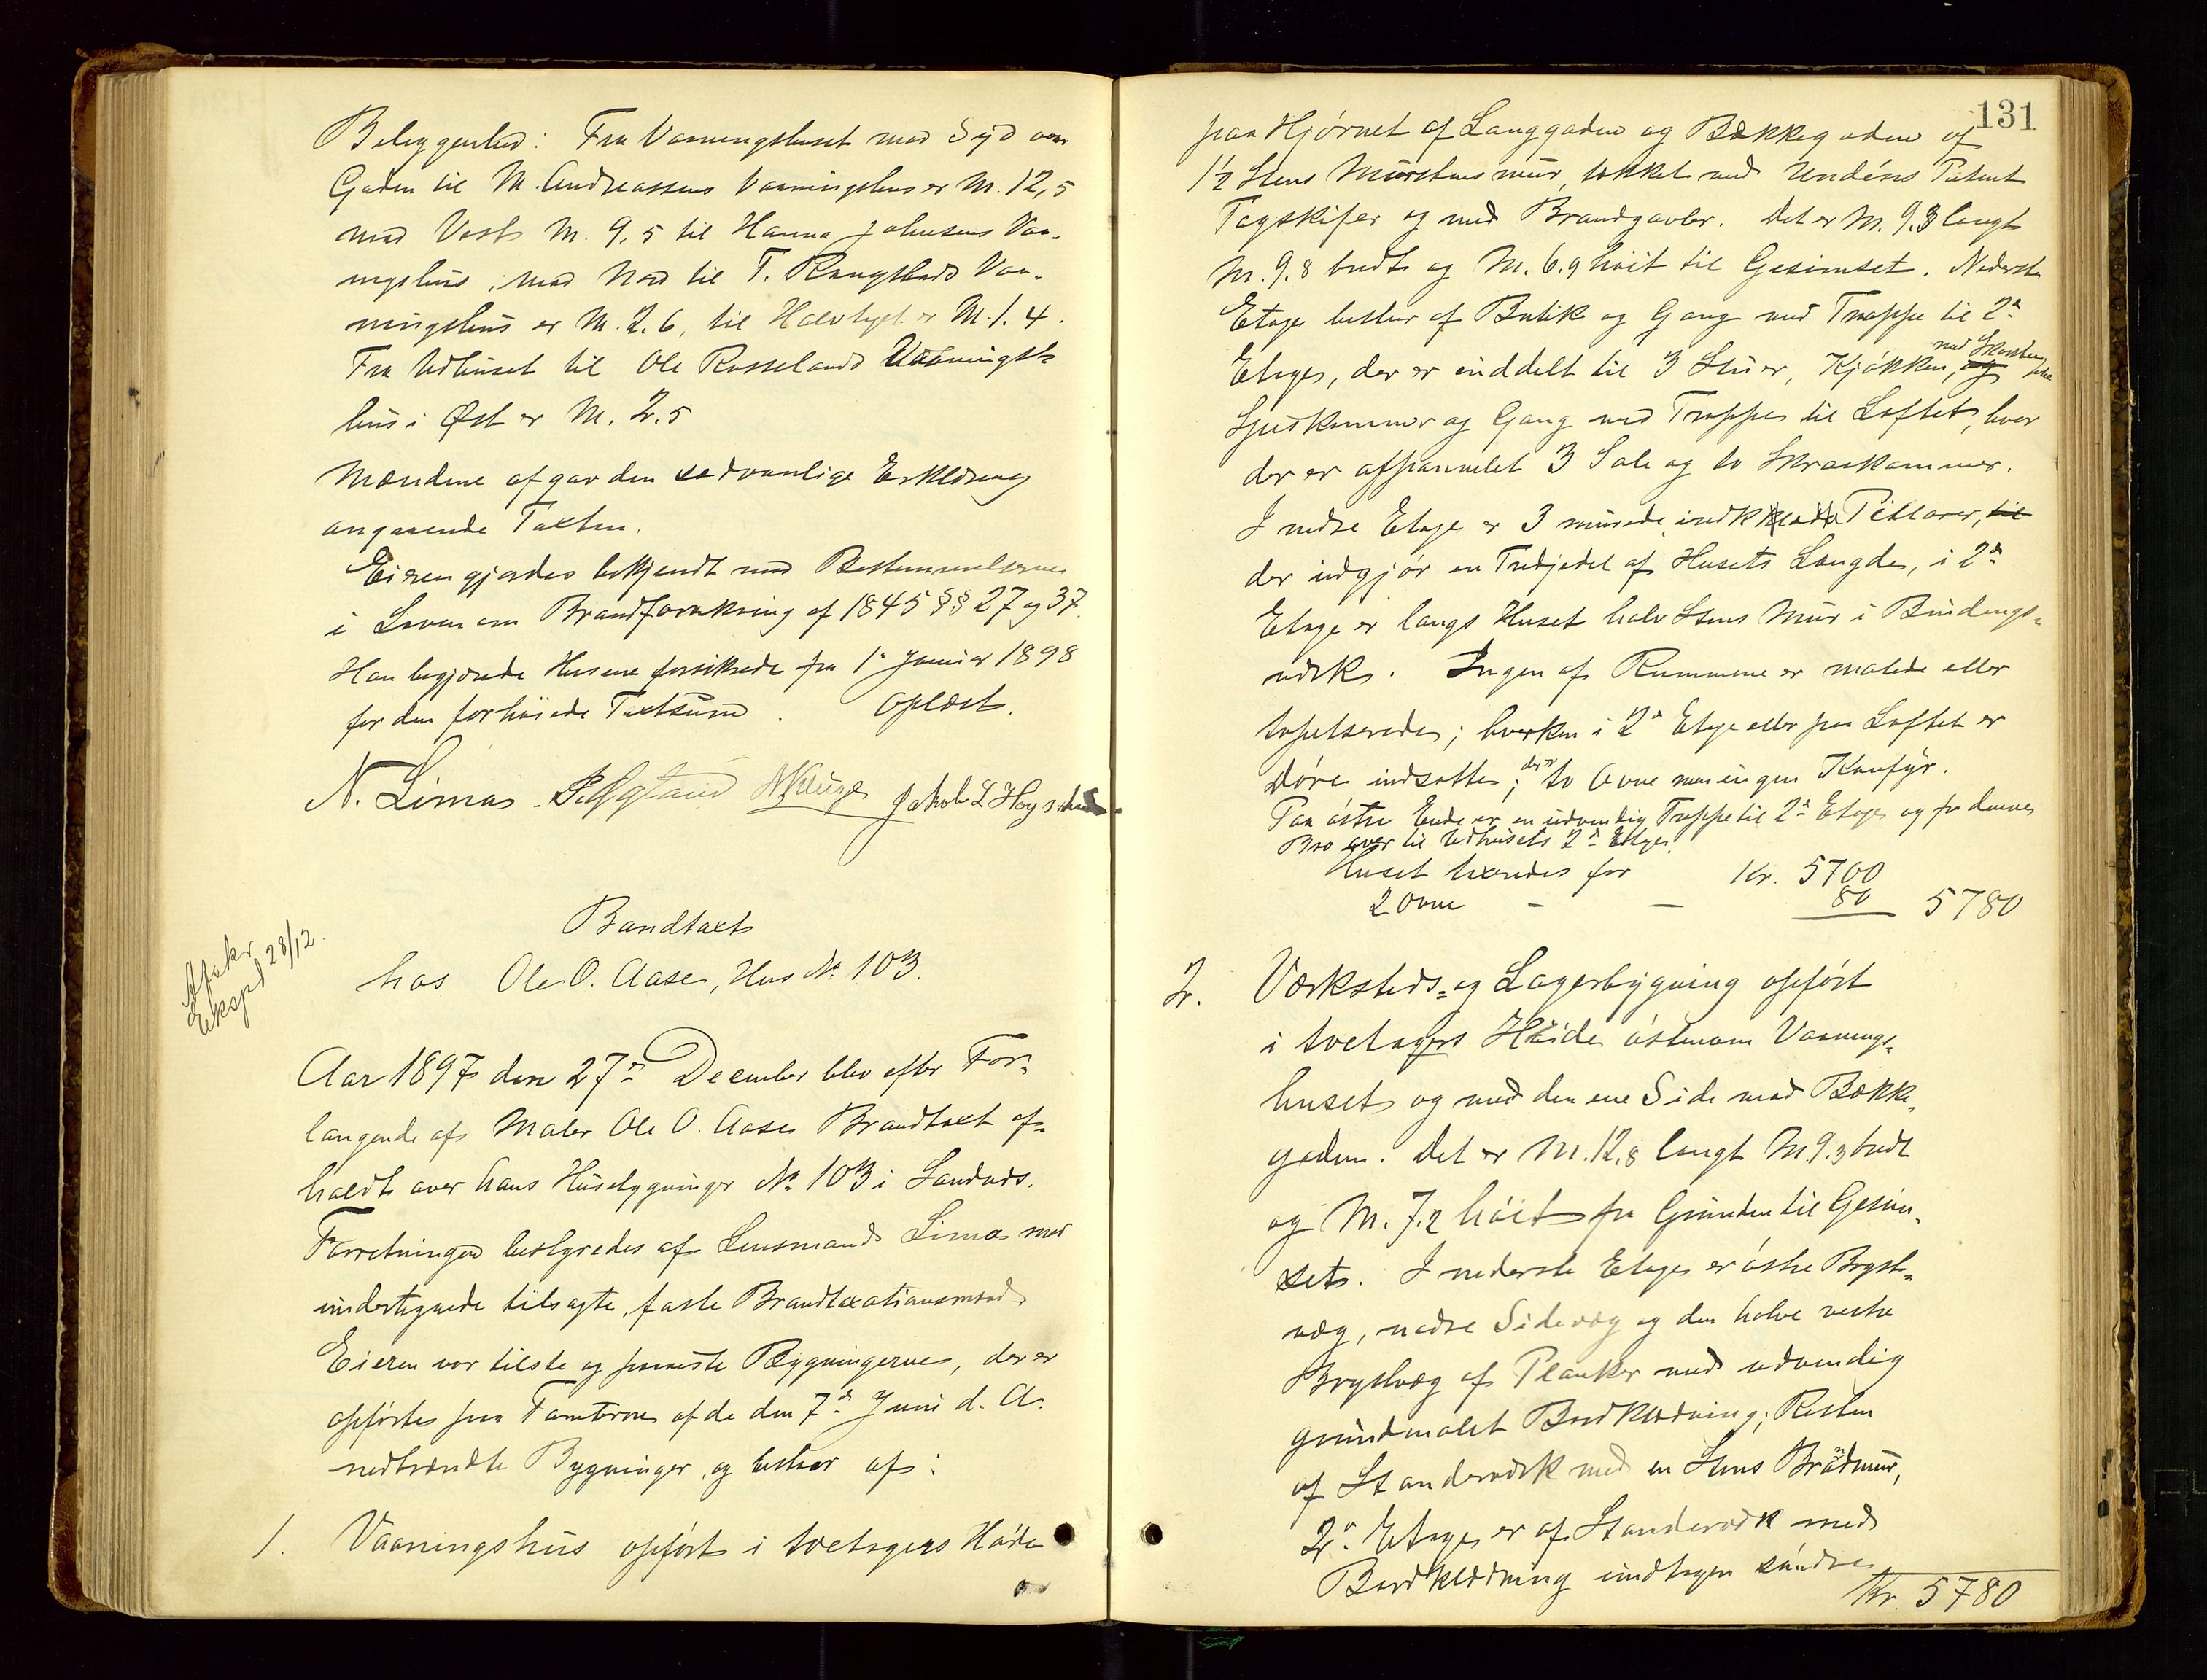 Beliggenhed: Fra Vaaningshuset mod Syd over
Gaden til M. Andreassens Vaaningshus er M. 12,5
mod Vest M. 9,5 til Hanna Johnsens Vaa-
ningshus, mod Nord til T. Rangstads Vaa-
ningshus er M. 2.6, til Halvtaget er M. 1.4.
Fra Udhuset til Ole Rosselands Vaanings-
hus i Øst er M. 2.5
Mændene afgav den sædvanlige Erklæring
angaaende Taxten.
Eieren gjordes bekjendt med Bestemmelserne
i Loven om Brandforsikring af 1845 §§ 27 og 37.
Han begjærede Husene forsikrede fra 1ᵉ Januar 1898
for den forhøiede Taxtsum. Oplæst.
N. Lima. Jakob L Hogstad
Bandtaxt
hos Ole O. Aase, Hus № 103.
Afskr.
Ekspd 28/12.
Aar 1897 den 27ᵈᵉ December blev efter For-
langende af Maler Ole O. Aase Brandtaxt af-
holdt over hans Husebygninger № 103 i Sandnes.
Forretningen bestyredes af Lensmand Lima med
undertegnede tilsagte, faste Brandtaxationsmænd.
Eieren var tilstede og paaviste Bygningerne, der er
opførte paa Tomterne af de den 7ᵈᵉ Juni d. A.
nedbrændte Bygninger, og bestaar af:
1. Vaaningshus opført i toetages Høide
131
paa Hjørnet af Langgaden og Bækkegaden af
1½ Stens Murstensmur, tækket med Undéns Patent
Tagskifer og med Brandgavler. Det er M. 9.3 langt
M. 9.8 bredt og M. 6.9 høit til Gesimset. Nederste
Etage bestaar af Butik og Gang med Trappe til 2ᵈᵉⁿ
Etage, der er inddelt til 3 Stuer, Kjøkken, og med Skorsten
Spiskammer og Gang med Trappe til Loftet, hvor
der er afpanelet 3 Sale og to Skraakammer.
I nedre Etage er 3 murede, indklædte Pillarer, til
der udgjør en Tredjedel af Husets Længde, i 2ᵈᵉⁿ
Etage er langs Huset halv Stens Mur i Bindings-
værk. Ingen af Rummene er malede eller
tapetserede; hverken i 2ᵈᵉⁿ Etage eller paa Loftet er
Døre indsatte; der er to Ovne men ingen Komfyr.
Paa østre Ende er en udvendig Trappe til 2ᵈᵉⁿ Etage og fra denne
Bro over til Udhusets 2ᵈᵉⁿ Etage.
Huset taxeredes for Kr. 5700
2 Ovne — — 80 5780
2. Værksteds- og Lagerbygning opført
i toetages Høide østenom Vaanings-
huset og med den ene Side mod Bække-
gaden. Det er M. 12,8 langt M. 9.3 bredt
og M. 7.2 høit fra Grunden til Gesim-
set. I nederste Etage er østre Bryst-
væg, nedre Sidevæg og den halve vestre
Brystvæg af Planker med udvendig
grundmalet Bordklædning; Resten
af Standerværk med en Stens Brandmur,
2ᵈᵉⁿ Etage er af Standerværk med
Bordklædning undtagen søndre
Kr. 5780